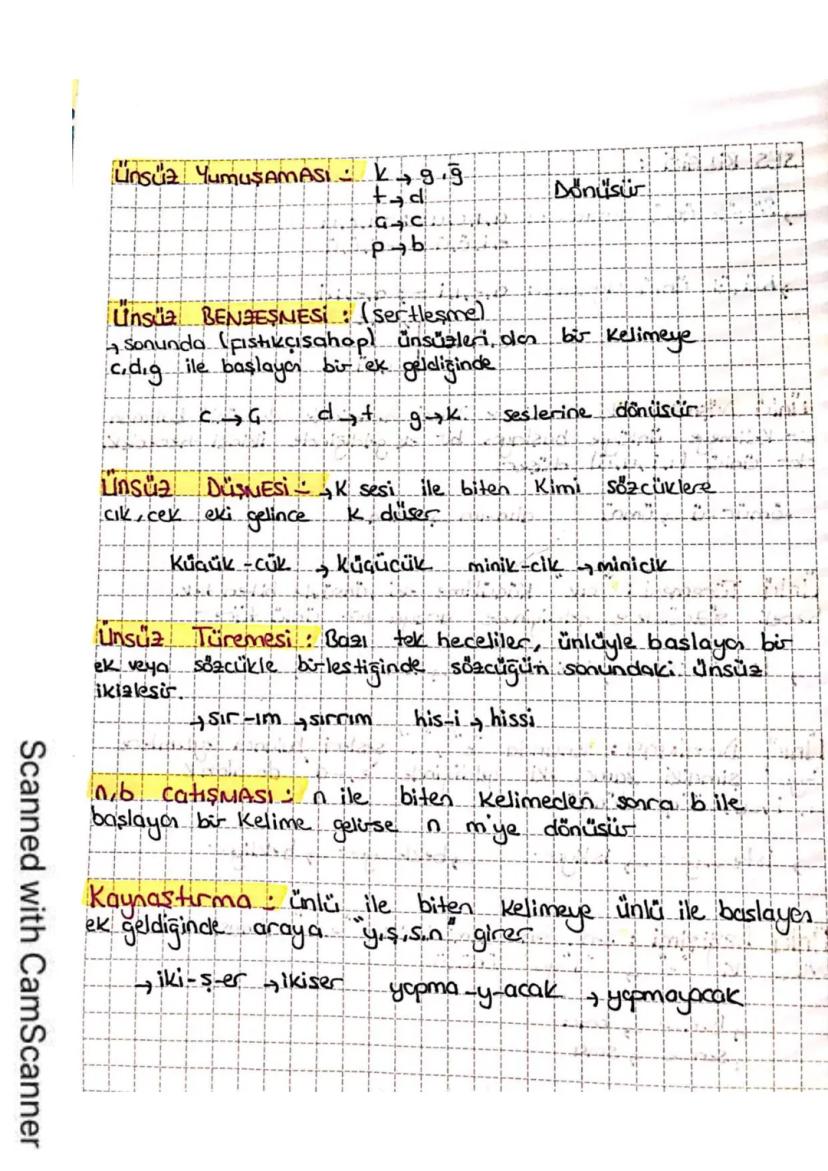 Ünsüz Yumuşaması : k → g, ğ
t → d Dönüşür
ç → c
p → b
Ünsüz BENZEŞMESİ : (sertleşme)
→ sonunda (fıstıkçışahap) ünsüzleri olan bir kelimeye
c,d,g ile başlayan bir ek geldiğinde
c → ç d → t g → k seslerine dönüşür
Ünsüz DÜŞMESİ : → K sesi ile biten Kimi sözcüklere
cık, cek eki gelince K düşer
Küçük -cük → küçücük minik-cik → minicik
Ünsüz Türemesi : Bazı tek heceliler, ünlüyle başlayan bir
ek veya sözcükle birleştiğinde sözcüğün sonundaki ünsüz
ikizleşir.
→ sır-ım → sırrım his-i → hissi
n,b ÇATIŞMASI : n ile biten kelimeden sonra b ile
başlayan bir Kelime gelirse n m'ye dönüşür
Kaynaştırma : ünlü ile biten kelimeye ünlü ile başlayan
ek geldiğinde araya "y,ş,s,n" girer
→ iki-ş-er → ikişer yapma-y-acak → yapmayacak
Scanned with CamScanner